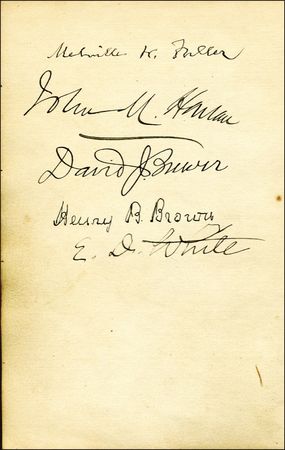 Melville W. Fuller
John M. Harlan
David J. Brewer
Henry B. Brown
E. D. White